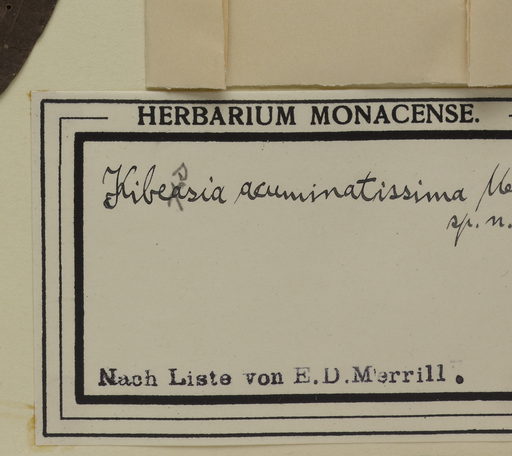 HERBARIUM MONACENSE.
Kibessia acuminatissima Me
sp. n.
Nach Liste von E.D.Merrill.